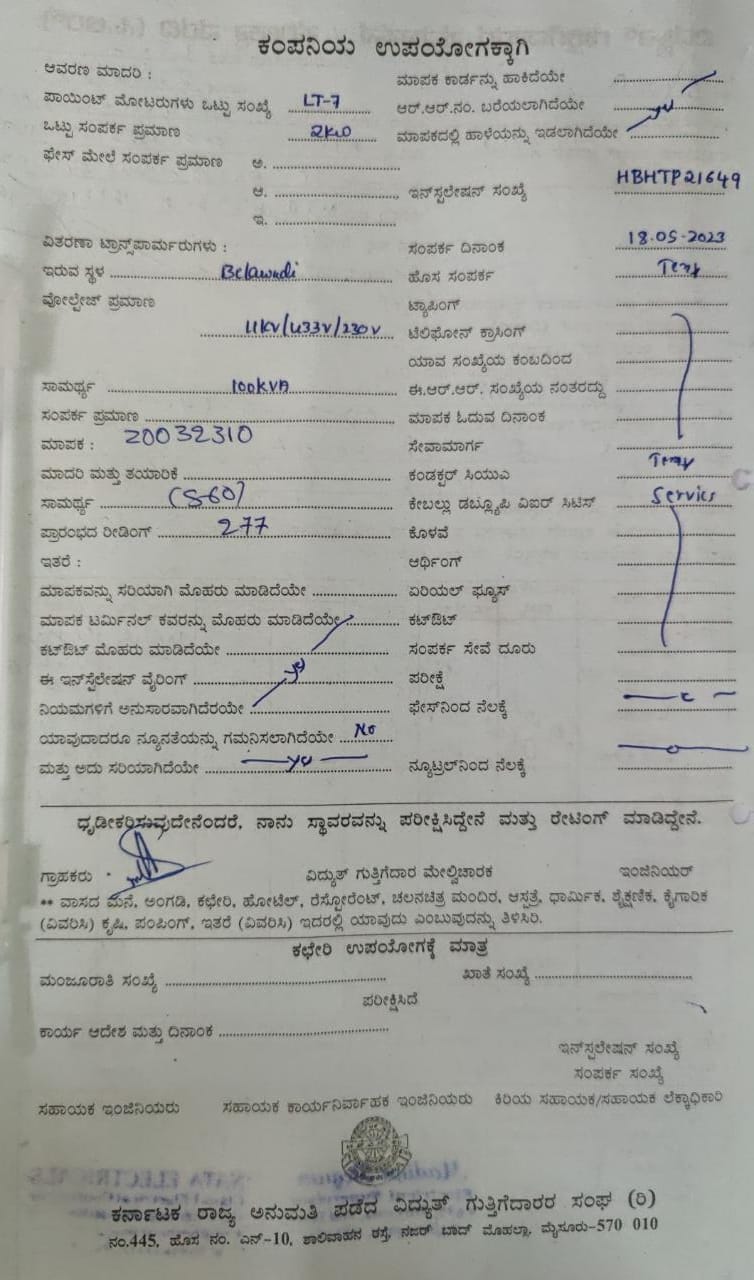 ಕಂಪನಿಯ ಉಪಯೋಗಕ್ಕಾಗಿ
ಆವರಣ ಮಾದರಿ :
ಮಾಪಕ ಕಾರ್ಡನ್ನು ಹಾಕಿದೆಯೇ
ಪಾಯಿಂಟ್ ಮೋಟರುಗಳು ಒಟ್ಟು ಸಂಖ್ಯೆ LT-7
ಆರ್.ಆರ್.ನಂ. ಬರೆಯಲಾಗಿದೆಯೇ
ಒಟ್ಟು ಸಂಪರ್ಕ ಪ್ರಮಾಣ 2KW
ಮಾಪಕದಲ್ಲಿ ಹಾಳೆಯನ್ನು ಇಡಲಾಗಿದೆಯೇ
ಫೇಸ್ ಮೇಲೆ ಸಂಪರ್ಕ ಪ್ರಮಾಣ ಅ.
ಆ.
ಇನ್‌ಸ್ಟಲೇಷನ್ ಸಂಖ್ಯೆ HBHTP21649
ಇ.
ವಿತರಣಾ ಟ್ರಾನ್ಸ್‌ಫಾರ್ಮರುಗಳು :
ಸಂಪರ್ಕ ದಿನಾಂಕ 18.05-2023
ಇರುವ ಸ್ಥಳ Belawadi
ಹೊಸ ಸಂಪರ್ಕ Temp
ವೋಲ್ಟೇಜ್ ಪ್ರಮಾಣ
ಟ್ಯಾಪಿಂಗ್
11KV/433V/230V
ಟೆಲಿಫೋನ್ ಕ್ರಾಸಿಂಗ್
ಯಾವ ಸಂಖ್ಯೆಯ ಕಂಬದಿಂದ
ಸಾಮರ್ಥ್ಯ 100KVA
ಈ.ಆರ್.ಆರ್. ಸಂಖ್ಯೆಯ ನಂತರದ್ದು
ಸಂಪರ್ಕ ಪ್ರಮಾಣ
ಮಾಪಕ ಓದುವ ದಿನಾಂಕ
ಮಾಪಕ : 20032310
ಸೇವಾಮಾರ್ಗ
ಮಾದರಿ ಮತ್ತು ತಯಾರಿಕೆ
ಕಂಡಕ್ಟರ್ ಸಿಯುಎ Temp
ಸಾಮರ್ಥ್ಯ (5-60)
ಕೇಬಲ್ಲು ಡಬ್ಲ್ಯೂಪಿ ವಿಐರ್ ಸಿಟಿಸ್ Service
ಪ್ರಾರಂಭದ ರೀಡಿಂಗ್ 277
ಕೊಳವೆ
ಇತರೆ :
ಆರ್ಥಿಂಗ್
ಮಾಪಕವನ್ನು ಸರಿಯಾಗಿ ಮೊಹರು ಮಾಡಿದೆಯೇ
ಏರಿಯಲ್ ಫ್ಯೂಸ್
ಮಾಪಕ ಟರ್ಮಿನಲ್ ಕವರನ್ನು ಮೊಹರು ಮಾಡಿದೆಯೇ
ಕಟ್‌ಔಟ್
ಕಟ್‌ಔಟ್ ಮೊಹರು ಮಾಡಿದೆಯೇ
ಸಂಪರ್ಕ ಸೇವೆ ದೂರು
ಈ ಇನ್‌ಸ್ಟಲೇಷನ್ ವೈರಿಂಗ್
ಪರೀಕ್ಷೆ
ನಿಯಮಗಳಿಗೆ ಅನುಸಾರವಾಗಿದೆರಯೇ
ಫೇಸ್‌ನಿಂದ ನೆಲಕ್ಕೆ
ಯಾವುದಾದರೂ ನ್ಯೂನತೆಯನ್ನು ಗಮನಿಸಲಾಗಿದೆಯೇ No
ಮತ್ತು ಅದು ಸರಿಯಾಗಿದೆಯೇ
ನ್ಯೂಟ್ರಲ್‌ನಿಂದ ನೆಲಕ್ಕೆ
ಧೃಡೀಕರಿಸುವುದೇನೆಂದರೆ, ನಾನು ಸ್ಥಾವರವನ್ನು ಪರೀಕ್ಷಿಸಿದ್ದೇನೆ ಮತ್ತು ರೇಟಿಂಗ್ ಮಾಡಿದ್ದೇನೆ.
ಗ್ರಾಹಕರು
ವಿದ್ಯುತ್ ಗುತ್ತಿಗೆದಾರ ಮೇಲ್ವಿಚಾರಕ
ಇಂಜಿನಿಯರ್
** ವಾಸದ ಮನೆ, ಅಂಗಡಿ, ಕಛೇರಿ, ಹೋಟೆಲ್, ರೆಸ್ಟೋರೆಂಟ್, ಚಲನಚಿತ್ರ ಮಂದಿರ, ಆಸ್ಪತ್ರೆ, ಧಾರ್ಮಿಕ, ಶೈಕ್ಷಣಿಕ, ಕೈಗಾರಿಕ
(ವಿವರಿಸಿ) ಕೃಷಿ, ಪಂಪಿಂಗ್, ಇತರೆ (ವಿವರಿಸಿ) ಇದರಲ್ಲಿ ಯಾವುದು ಎಂಬುವುದನ್ನು ತಿಳಿಸಿರಿ.
ಕಛೇರಿ ಉಪಯೋಗಕ್ಕೆ ಮಾತ್ರ
ಮಂಜೂರಾತಿ ಸಂಖ್ಯೆ
ಖಾತೆ ಸಂಖ್ಯೆ
ಪರೀಕ್ಷಿಸಿದೆ
ಕಾರ್ಯ ಆದೇಶ ಮತ್ತು ದಿನಾಂಕ
ಇನ್‌ಸ್ಟಲೇಷನ್ ಸಂಖ್ಯೆ
ಸಂಪರ್ಕ ಸಂಖ್ಯೆ
ಸಹಾಯಕ ಇಂಜಿನಿಯರು
ಸಹಾಯಕ ಕಾರ್ಯನಿರ್ವಾಹಕ ಇಂಜಿನಿಯರು
ಕಿರಿಯ ಸಹಾಯಕ/ಸಹಾಯಕ ಲೆಕ್ಕಾಧಿಕಾರಿ
ಕರ್ನಾಟಕ ರಾಜ್ಯ ಅನುಮತಿ ಪಡೆದ ವಿದ್ಯುತ್ ಗುತ್ತಿಗೆದಾರರ ಸಂಘ (ರಿ)
ನಂ.445, ಹೊಸ ನಂ. ಎನ್-10, ಶಾಲಿವಾಹನ ರಸ್ತೆ, ನಜರ್ ಬಾದ್ ಮೊಹಲ್ಲಾ, ಮೈಸೂರು-570 010